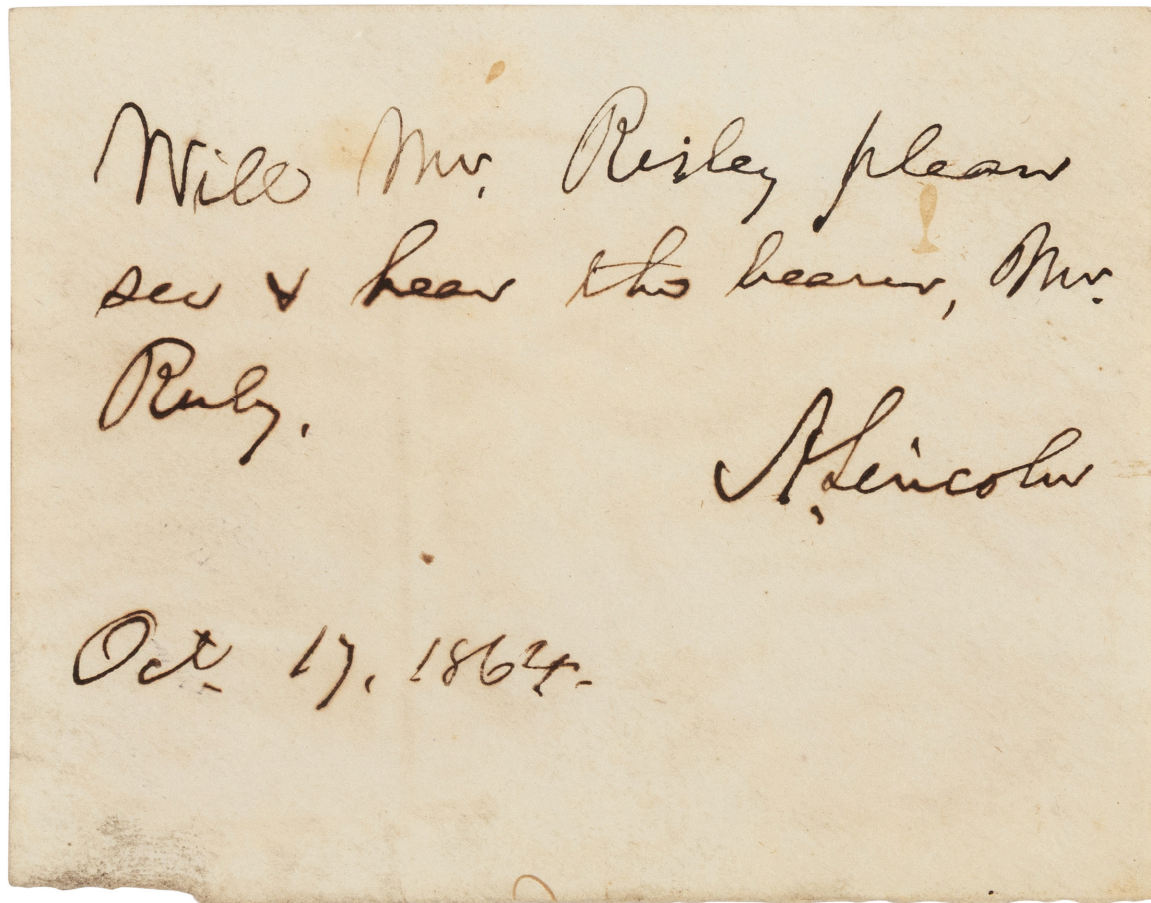 Will Mr. Risley please
see & hear the bearer, Mr.
Ruby.
A. Lincoln
Oct. 17, 1864.